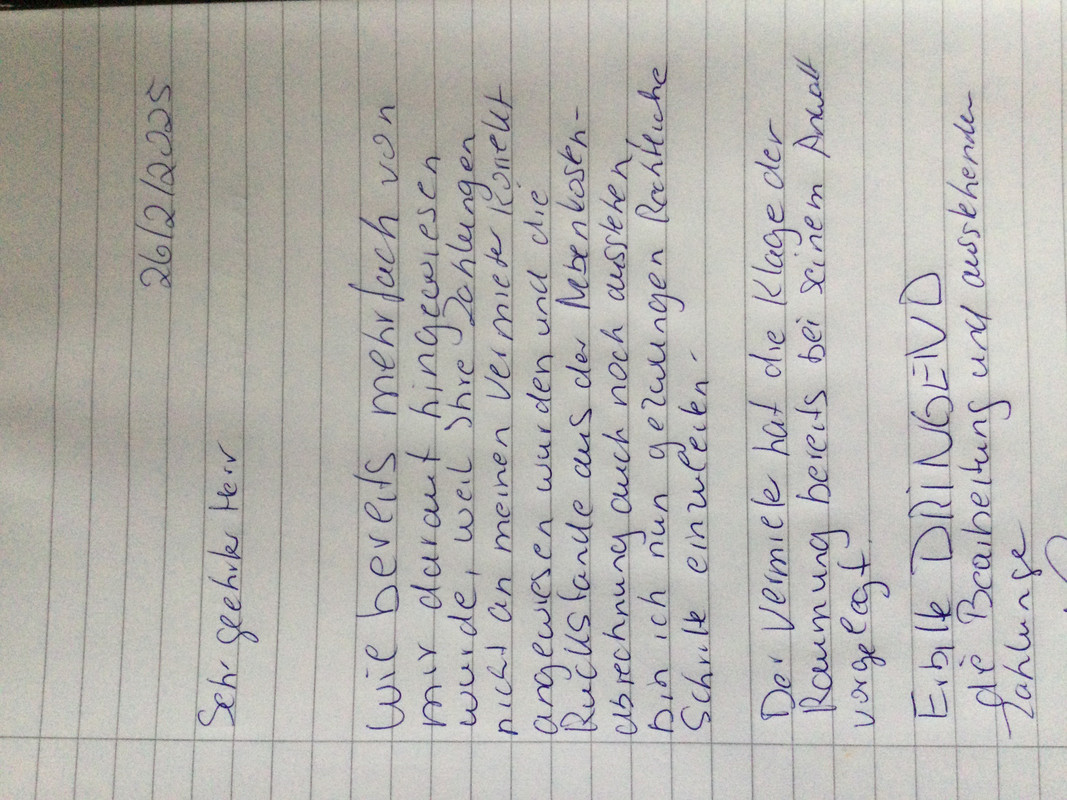 26/2/2025
Sehr geehrter Herr
Wie bereits mehrfach von
mir darauf hingewiesen
wurde, weil Ihre Zahlungen
nicht an meinen Vermieter Korrekt
angewiesen wurden und die
Rückstände aus der Nebenkosten-
abrechnung auch noch ausstehen,
bin ich nun gezwungen Rechtliche
Schritte einzuleiten.
Der Vermiete hat die Klage der
Räumung bereits bei seinem Anwalt
vorgelegt.
Erbitte DRINGEND
die Bearbeitung und ausstehenden
Zahlunge